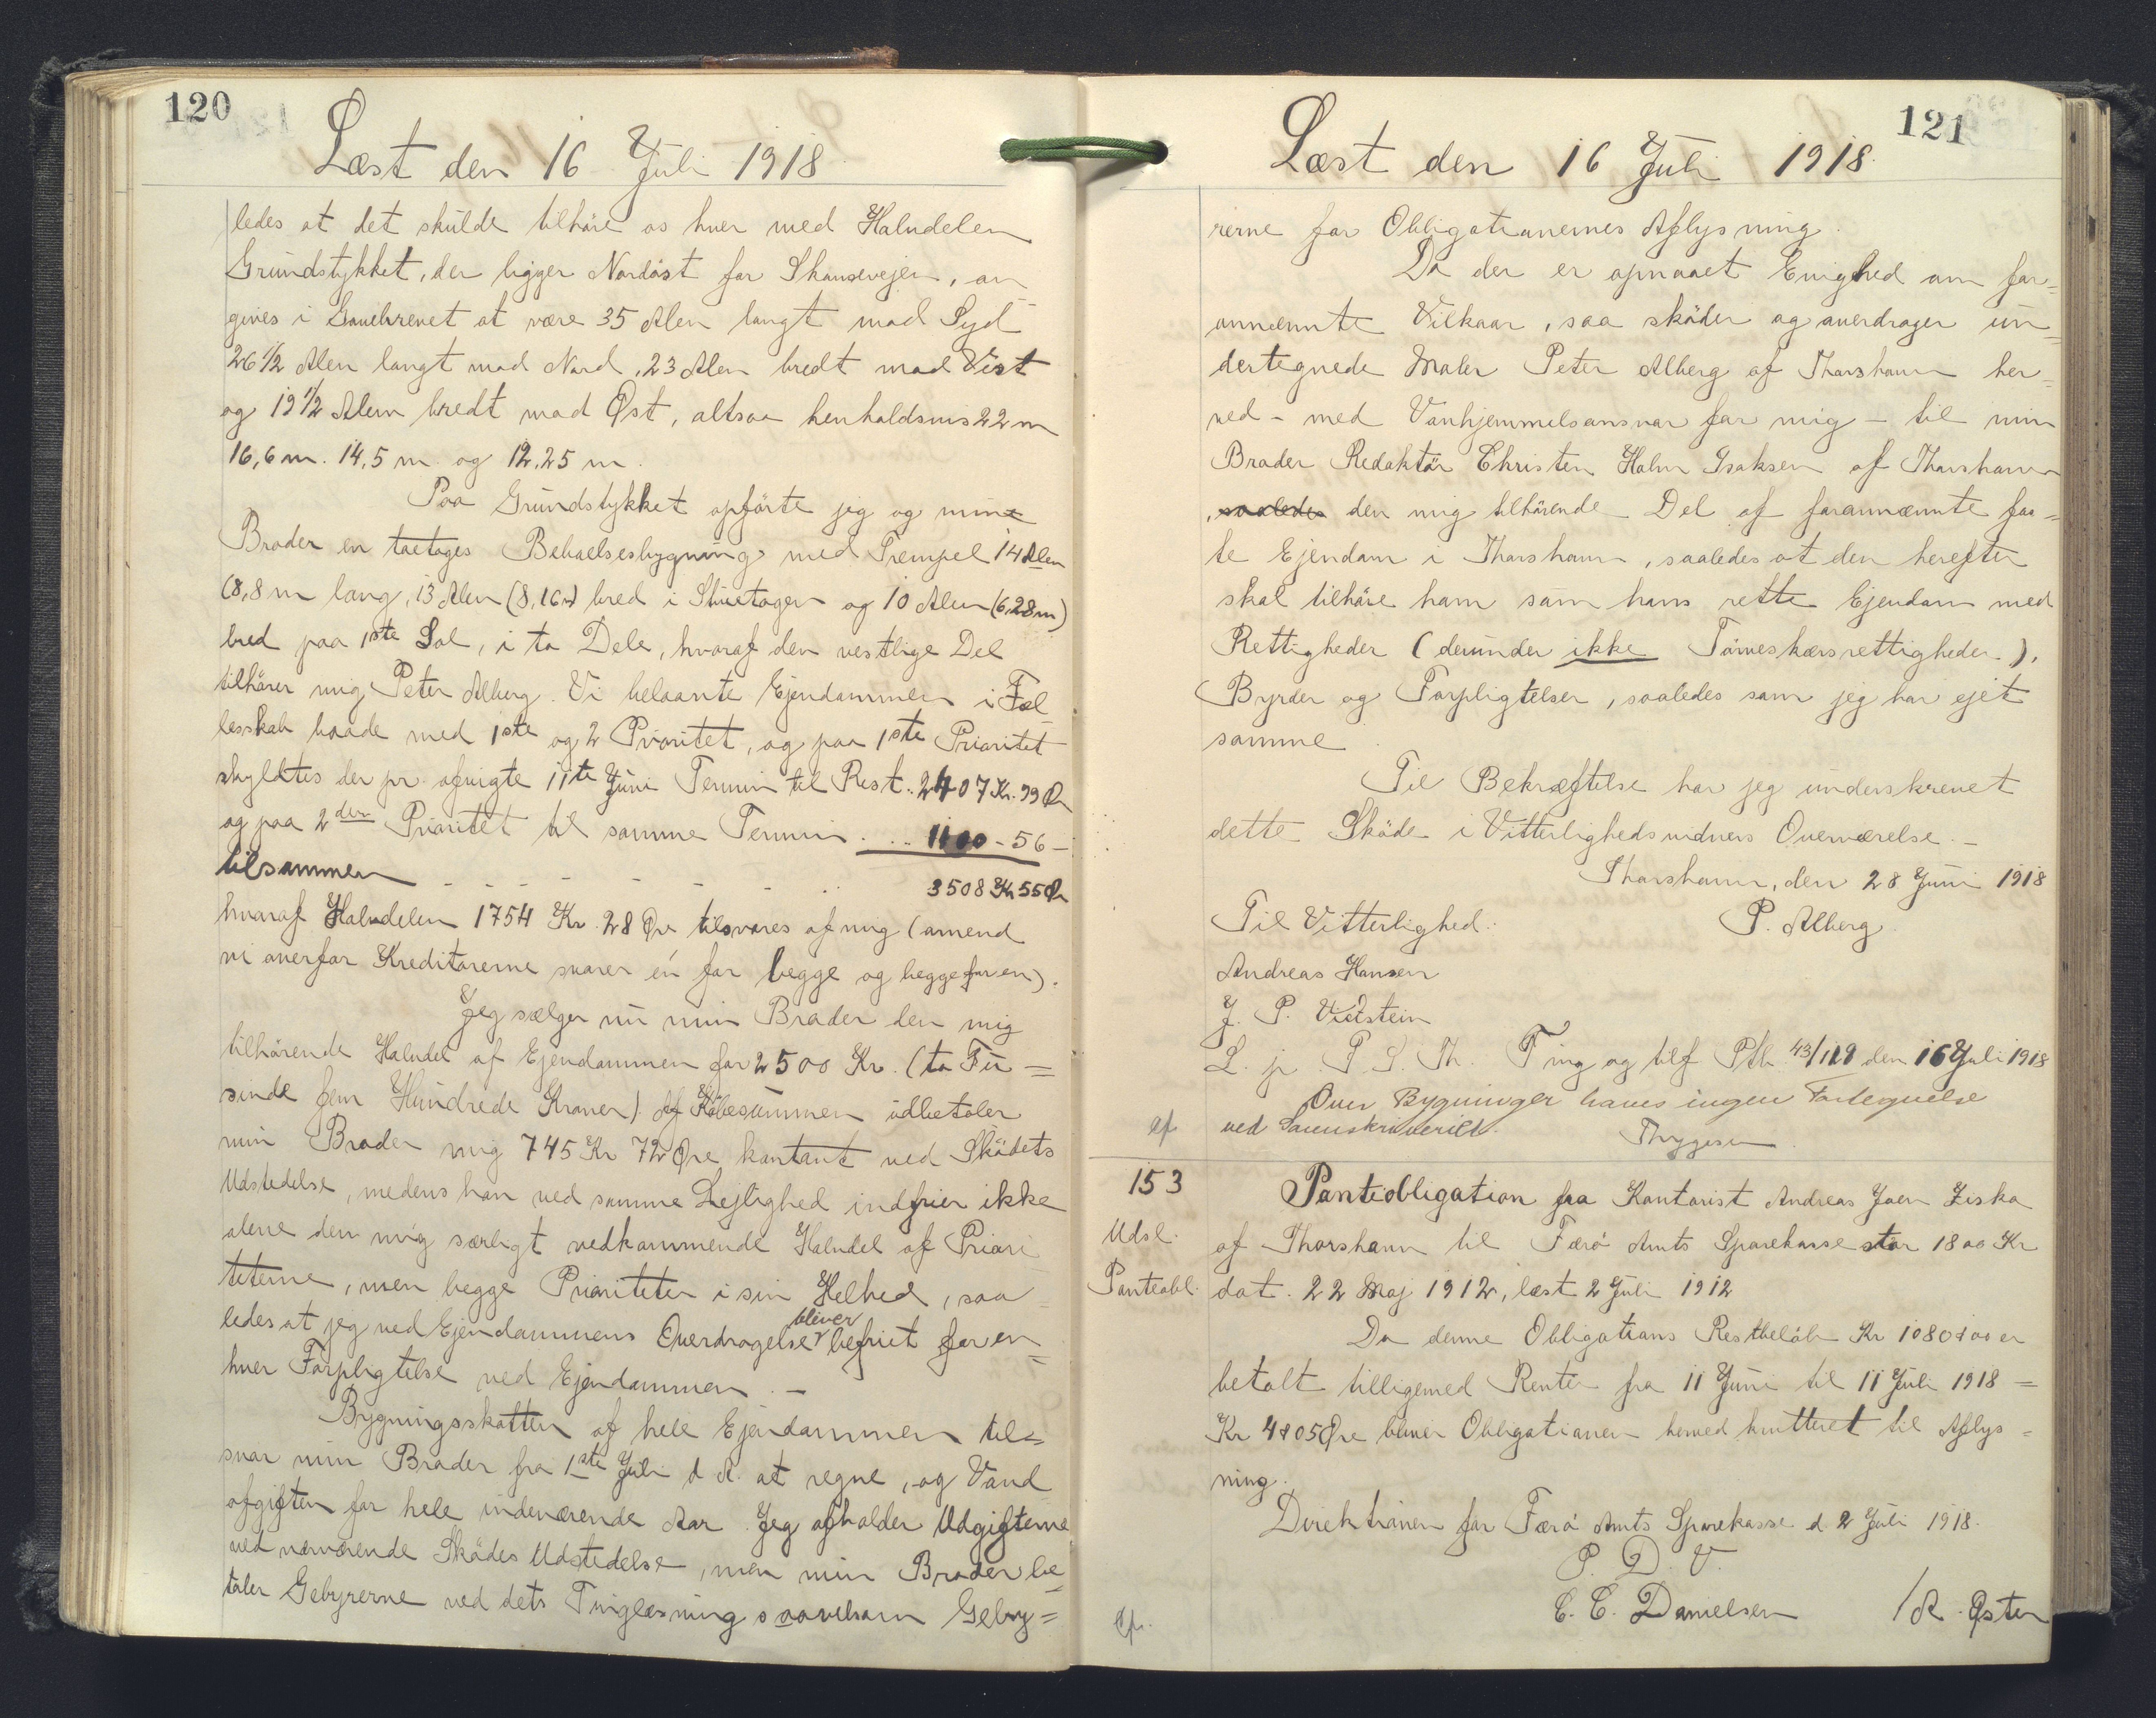 120
Læst den 16 Juli 1918
ledes at det skulde tilhöre os hver med Halvdelen
Grundstykket, der ligger Nordöst for Skansevejen, an-
gives i Gavebrevet at være 35 Alen langt mod Syd
26 1/2 Alen langt mod Nord, 23 Alen bredt mod Vest
og 19 1/2 Alen bredt mod Øst, altsaa henholdsvis 22 m
16,6 m. 14,5 m. og 12,25 m.
Paa Grundstykket opförte jeg og min
Broder en toetages Beboelsesbygning med Trempel 14 Alen
(8,8 m lang, 13 Alen (8,16 m) bred i Stuetagen og 10 Alen (6,28 m)
bred paa 1ste Sal, i to Dele, hvoraf den vestlige Del
tilhører mig Peter Alberg. Vi belaante Ejendommen i Fæl-
lesskab baade med 1ste og 2 Prioritet, og paa 1ste Prioritet
skyldtes der pr. afvigte 11te Juni Termin til Rest. 2407 Kr. 99 Ør
og paa 2den Prioritet til samme Termin . . . 1100 - 56 -
tilsammen - - - - - - - 3508 Kr 55 Ør
hvoraf Halvdelen 1754 Kr. 28 Øre tilsvares af mig (omend
vi overfor Kreditorerne svarer én for begge og begge for en).
Jeg sælger nu min Broder den mig
tilhörende Halvdel af Ejendommen for 2500 Kr. (to Tu=
sinde fem Hundrede Kroner) Af Købesummen udbetaler
min Broder mig 745 Kr 72 Øre kontant ved Sködets
Udstedelse, medens han ved samme Lejlighed indfrier ikke
alene den mig særligt vedkommende Halvdel af Priori
teterne, men begge Prioriteter i sin Helhed, saa
ledes at jeg ved Ejendommens Overdragelse bliver befriet for en=
hver Forpligtelse ved Ejendommen. -
Bygningsskatten af hele Ejendommen til=
svar min Broder fra 1ste Juli d A. at regne, og Vand
afgiften for hele indeværende Aar. Jeg afholder Udgifterne
ved nærværende Skødes Udstedelse, men min Broder be=
taler Gebyrerne ved dets Tinglæsning saavelsom Geby=
121
Læst den 16 Juli 1918.
rerne for Obligationernes Aflysning.
Da der er opnaaet Enighed om for=
annævnte Vilkaar, saa sköder og overdrager un=
dertegnede Maler Peter Alberg af Thorshavn her=
ved - med Vanhjemmelsansvar for mig - til min
Broder Redaktör Christen Holm Isaksen af Thorshavn
, saaledes den mig tilhörende Del af forannævnte fas=
te Ejendom i Thorshavn, saaledes at den herefter
skal tilhöre ham som hans rette Ejendom med
Rettigheder (derunder ikke Törveskærsrettigheder.),
Byrder og Forpligtelser, saaledes som jeg har ejet
samme.
Til Bekræftelse har jeg underskrevet
dette Sköde i Vitterlighedsvidners Overværelse. -
Thorshavn, den 28 Juni 1918
Til Vitterlighed: P. Alberg.
Andreas Hansen
J. P. Vidstein
L. p. P. S. Th. Ting og tilf Ptb. 43/119 den 16 Juli 1918
Over Bygninger haves ingen Fortegnelse
ved Sorenskriveriet. Thygesen
153
Udsl.
Panteobl.
Panteobligation fra Kontorist Andreas Joen Ziska
af Thorshavn til Færö Amts Sparekasse stor 1800 Kr
dat. 22 Maj 1912, læst 2 Juli 1912
Da denne Obligations Restbelöb Kr 1080 00 er
betalt tilligemed Renter fra 11 Juni til 11 Juli 1918 =
Kr 4 05 Øre bliver Obligationen herved kvitteret til Aflys=
ning.
Direktionen for Færö Amts Sparekasse d. 2 Juli 1918.
P. D. V.
C. C. Danielsen /R. Øster